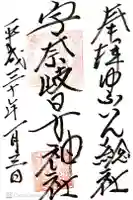 奉拝ゆふいん総社
宇奈岐日女神社
平成三十年一月三日